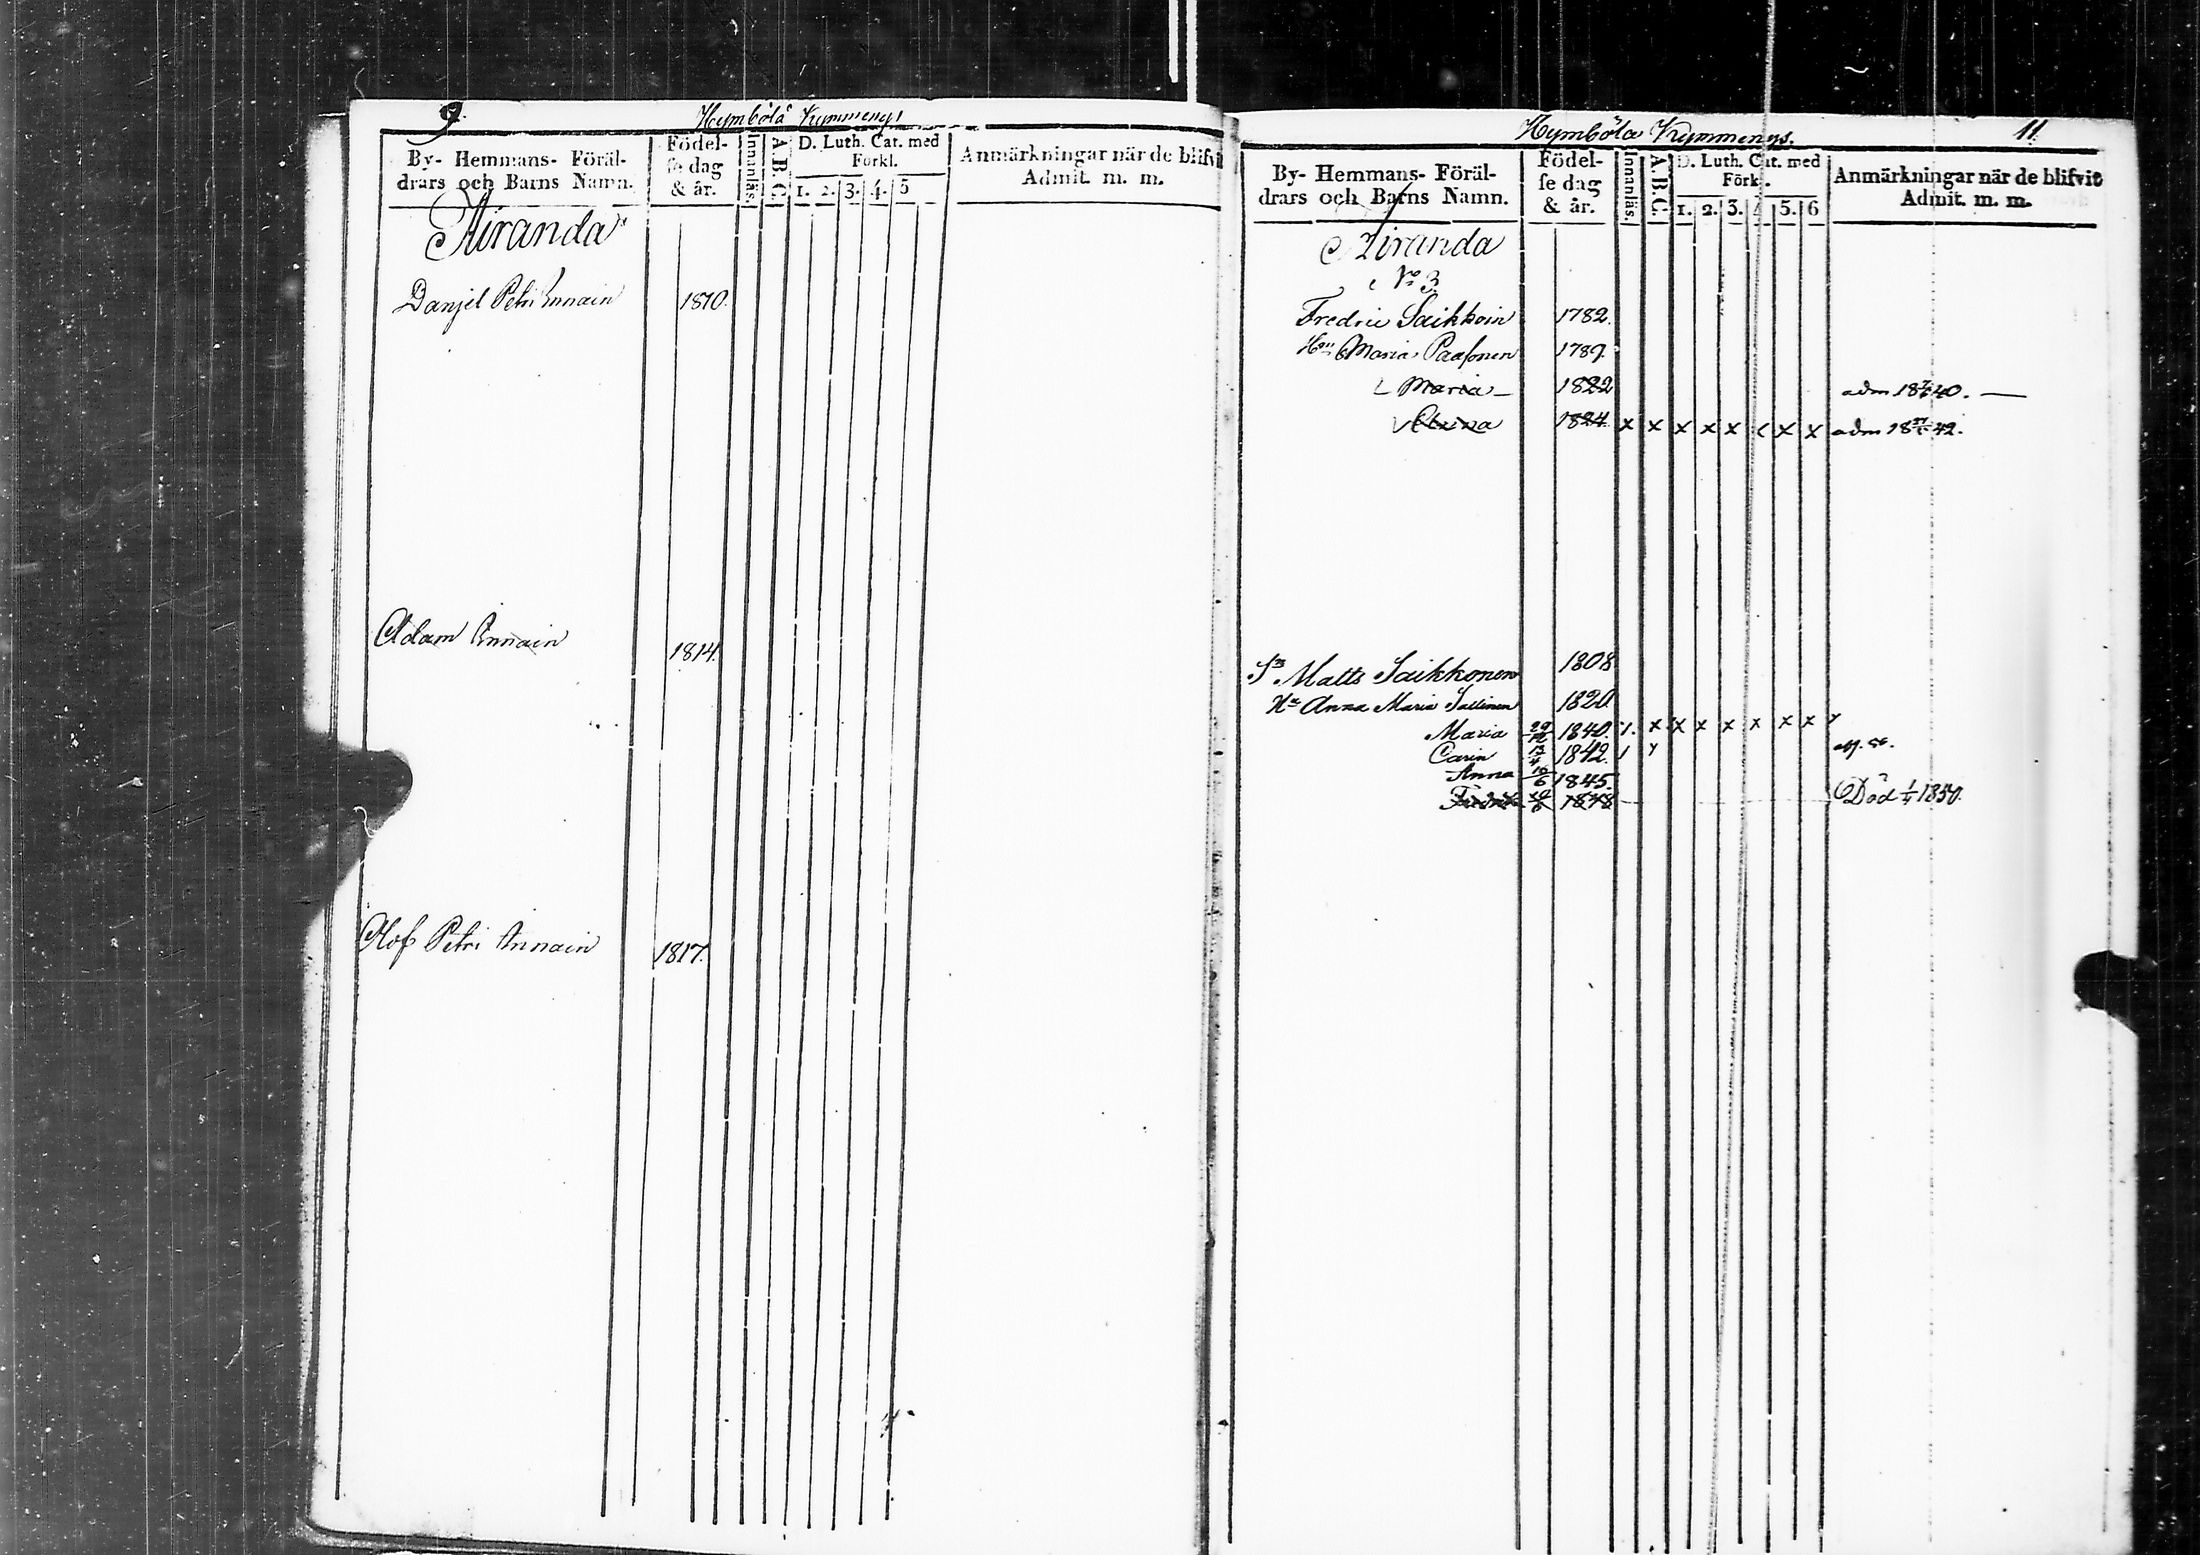 9.
Hymbölä Kymmenys
By- Hemmans- Föräl-
drars och Barns Namn.
Födel-
se dag
& år.
Innanläs.
A.B.C.
D. Luth. Cat. med
Förkl.
1. 2. 3. 4. 5
Anmärkningar när de blifvit
Admit. m. m.
Danjel Petri Innain 1810.
Adam Innain 1814.
Olof Petri Innain 1817.
Hymbölä Kymmenys. 11.
By- Hemmans- Föräl-
drars och Barns Namn.
Födel-
se dag
& år.
Innanläs.
A.B.C.
D. Luth. Cat. med
Förkl.
1. 2. 3. 4 5. 6
Anmärkningar när de blifvit
Admit. m. m.
No 3
Fredric Saikkoin 1782.
Hun Maria Paasonen 1789.
Maria 1822 adm 18 40.
1824 x x x x x x x x adm 18 42.
Sn Matts Saikkonen 1808
Hu Anna Maria 1820
Maria 1840. x x x x x x x
Carin 1842.
Anna 16/6 1845.
1848 Död 1850.